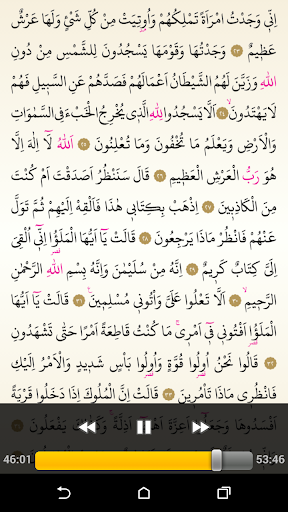 اِنّ۪ي وَجَدْتُ امْرَاَةً تَمْلِكُهُمْ وَاُو۫تِيَتْ مِنْ كُلِّ شَيْءٍ وَلَهَا عَرْشٌ
عَظ۪يمٌ ﴿٢٣﴾ وَجَدْتُهَا وَقَوْمَهَا يَسْجُدُونَ لِلشَّمْسِ مِنْ دُونِ
اللّٰهِ وَزَيَّنَ لَهُمُ الشَّيْطَانُ اَعْمَالَهُمْ فَصَدَّهُمْ عَنِ السَّب۪يلِ فَهُمْ
لَا يَهْتَدُونَۙ ﴿٢٤﴾ اَلَّا يَسْجُدُوا لِلّٰهِ الَّذ۪ي يُخْرِجُ الْخَبْءَ فِي السَّمٰوَاتِ
وَالْاَرْضِ وَيَعْلَمُ مَا تُخْفُونَ وَمَا تُعْلِنُونَ ﴿٢٥﴾ اَللّٰهُ لَٓا اِلٰهَ اِلَّا
هُوَ رَبُّ الْعَرْشِ الْعَظ۪يمِ ﴿٢٦﴾ قَالَ سَنَنْظُرُ اَصَدَقْتَ اَمْ كُنْتَ
مِنَ الْكَاذِب۪ينَ ﴿٢٧﴾ اِذْهَبْ بِكِتَاب۪ي هٰذَا فَاَلْقِهْ اِلَيْهِمْ ثُمَّ تَوَلَّ
عَنْهُمْ فَانْظُرْ مَاذَا يَرْجِعُونَ ﴿٢٨﴾ قَالَتْ يَٓا اَيُّهَا الْمَلَؤُ۬ا اِنّ۪ٓي اُلْقِيَ
اِلَيَّ كِتَابٌ كَر۪يمٌ ﴿٢٩﴾ اِنَّهُ مِنْ سُلَيْمٰنَ وَاِنَّهُ بِسْمِ اللّٰهِ الرَّحْمٰنِ
الرَّح۪يمِۙ ﴿٣٠﴾ اَلَّا تَعْلُوا عَلَيَّ وَأْتُون۪ي مُسْلِم۪ينَ۟ ﴿٣١﴾ قَالَتْ يَٓا اَيُّهَا
الْمَلَؤُ۬ا اَفْتُون۪ي ف۪ٓي اَمْر۪يۚ مَا كُنْتُ قَاطِعَةً اَمْرًا حَتّٰى تَشْهَدُونِ
﴿٣٢﴾ قَالُوا نَحْنُ اُو۬لُوا قُوَّةٍ وَاُو۬لُوا بَأْسٍ شَد۪يدٍ وَالْاَمْرُ اِلَيْكِ
فَانْظُر۪ي مَاذَا تَأْمُر۪ينَ ﴿٣٣﴾ قَالَتْ اِنَّ الْمُلُوكَ اِذَا دَخَلُوا قَرْيَةً
اَفْسَدُوهَا وَجَعَلُٓوا اَعِزَّةَ اَهْلِهَٓا اَذِلَّةًۚ وَكَذٰلِكَ يَفْعَلُونَ
46:01 53:46